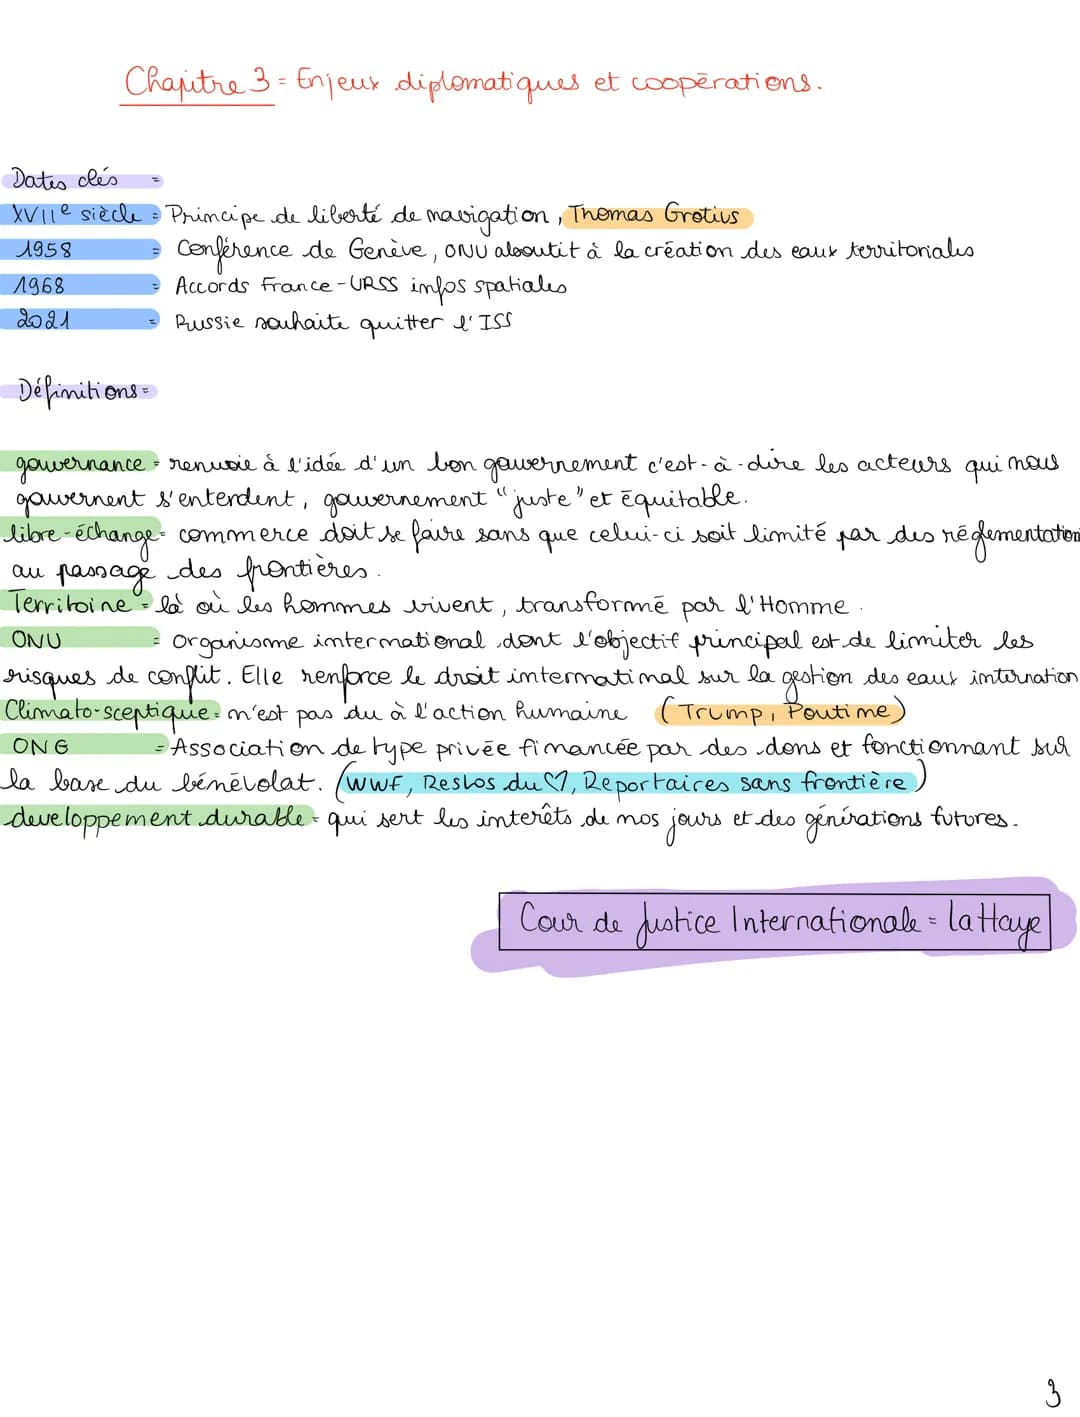 Chapitre 3 = Enjeux diplomatiques et coopérations.
Dates clés =
XVIIe siècle = Principe de liberté de navigation, Thomas Grotius
1958 = Conférence de Genève, ONU aboutit à la création des eaux territoriales
1968 = Accords France-URSS infos spatiales
2021 = Russie souhaite quitter l'ISS
Définitions =
gouvernance = renvoie à l'idée d'un bon gouvernement c'est-à-dire les acteurs qui nous
gouvernent s'entendent, gouvernement "juste" et équitable.
libre-échange = commerce doit se faire sans que celui-ci soit limité par des réglementation
au passage des frontières.
Territoire = là où les hommes vivent, transformé par l'Homme.
ONU = Organisme international dont l'objectif principal est de limiter les
risques de conflit. Elle renforce le droit international sur la gestion des eaux internation
Climato-sceptique = n'est pas du à l'action humaine (Trump, Poutine)
ONG = Association de type privée financée par des dons et fonctionnant sur
la base du bénévolat. (WWF, Restos du ♡, Reportaires sans frontière)
developpement durable = qui sert les interêts de nos jours et des générations futures.
Cour de Justice Internationale = la Haye
3